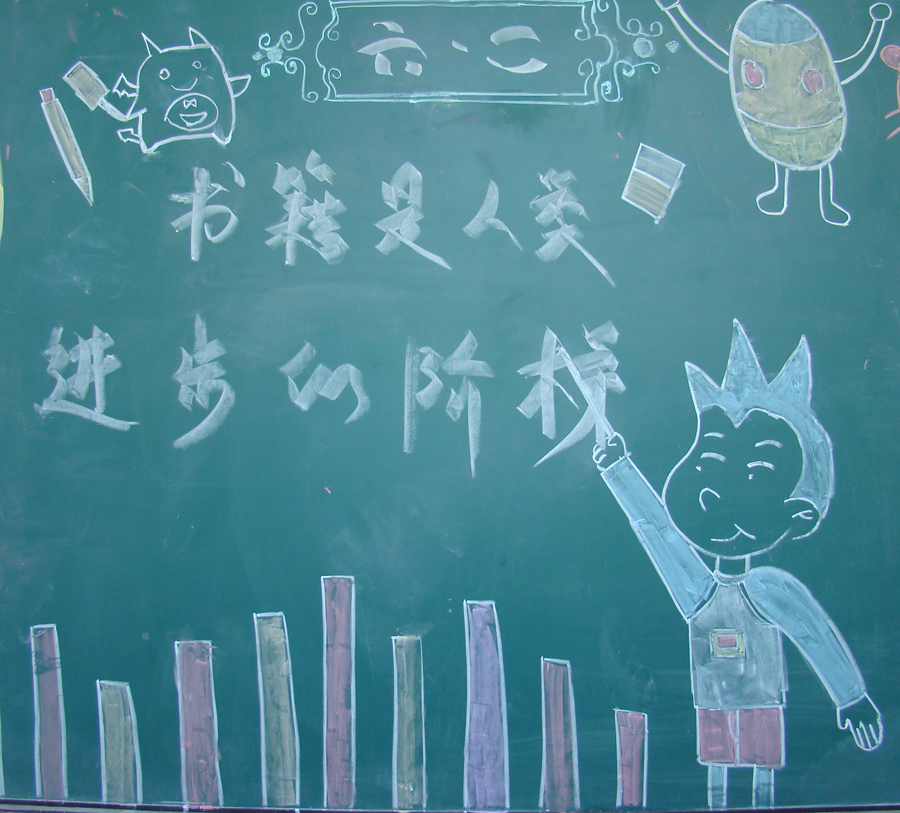 六·二
书籍是人类
进步的阶梯